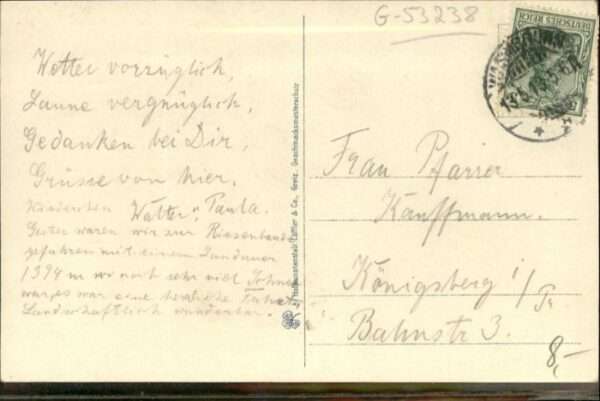 G-53238
DEUTSCHES REICH
Wetter vorzüglich,
Laune vergnüglich,
Gedanken bei Dir,
Grüsse von hier.
Walter u. Paula.
Gestern waren wir zur Riesenbaude
gefahren mit einem Landauer
1394 m wo noch sehr viel Schnee
war, es war eine herrliche Fahrt,
Landschaftlich wunderbar.
Frau Pfarrer
Kauffmann.
Königsberg i/Pr
Bahnstr 3.
8,-
& Co., Greiz. Geschmacksmusterschutz